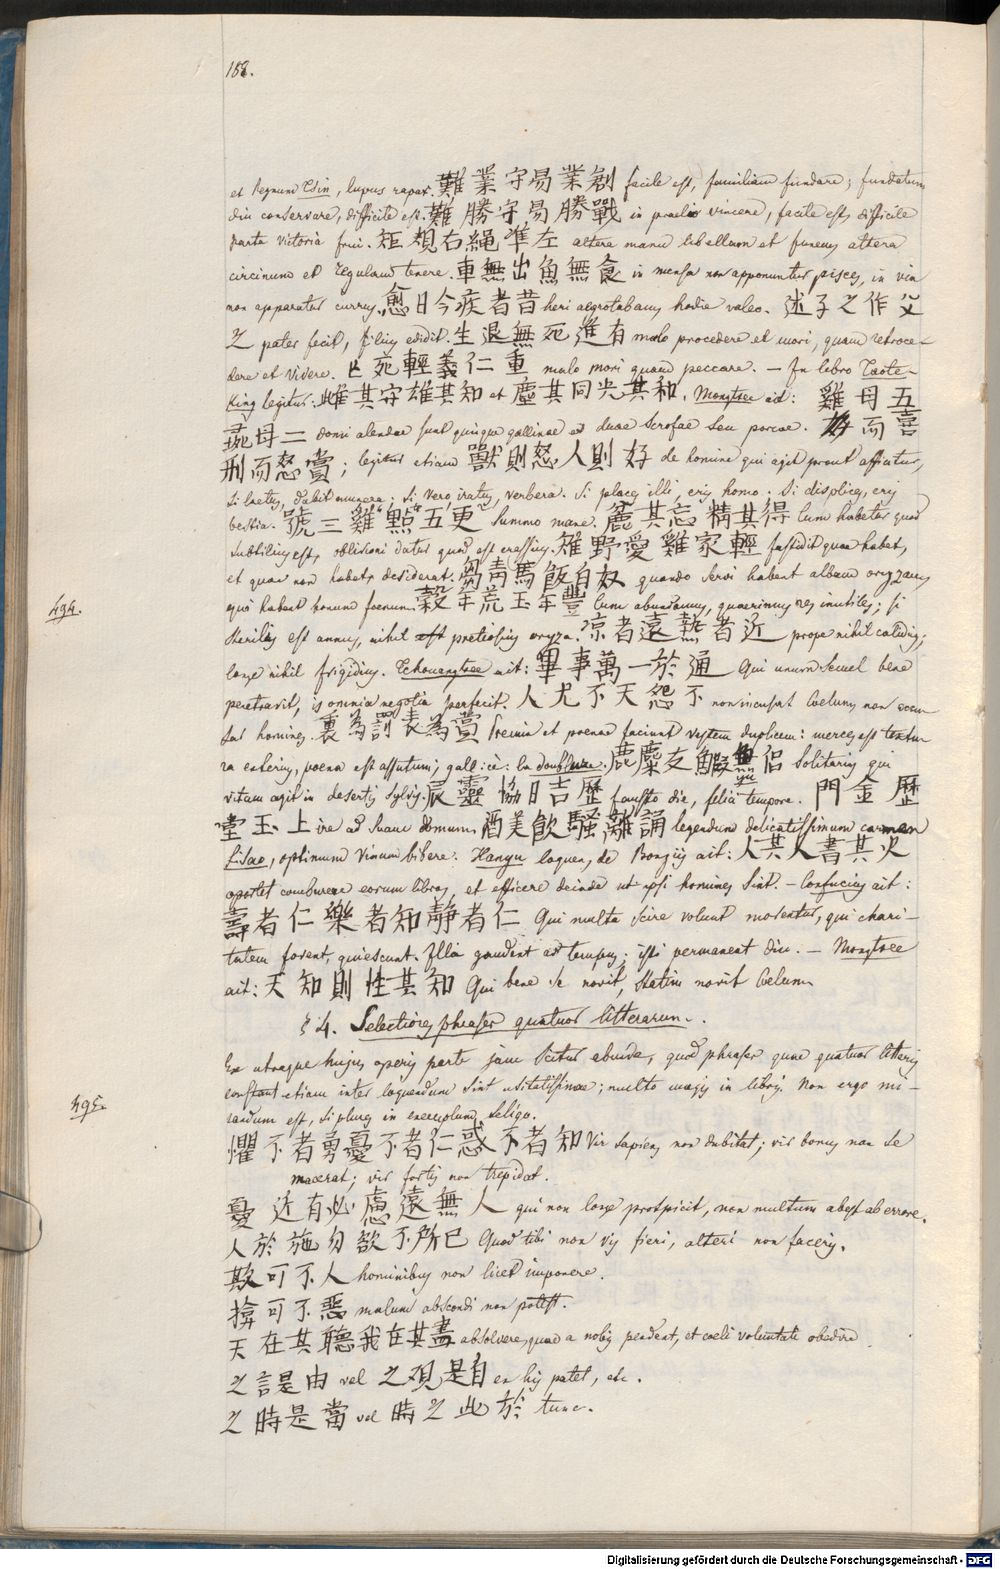 158.
et Regnum Tsin, lupus rapax. 難業守易業創 facile est, familiam fundare; fundatam
diu conservare, difficile est. 難勝守易勝戰 in praelio vincere, facile est, difficile
parta victoria frui. 矩規右繩準左 altera manu libellum et funem altera
circinum et regulam tenere. 車無出魚無食 in mensa non apponuntur pisces, in via
non apparatur currus. 愈日今疾者昔 heri aegrotabam, hodie valeo. 述子之作父
之 pater fecit, filius edidit. 生退無死進有 malo procedere et mori, quam retroce-
dere et vivere. 死輕義仁重 malo mori quam peccare. – In libro Taote-
king legitur: 雌其守雄其知 et 塵其同光其和. Mongtsee ait: 雞母五
彘母二 domi alendae sunt quinque gallinae et duae scrofae seu porcae. 而喜
刑而怒賞; legitur etiam 獸則怒人則好 de homine qui agit prout afficitur,
si laetus, dabit munera; si vero iratus, verbera. Si places illi, eris homo: Si displices, eris
bestia. 號三雞點五更 summo mane. 麤其忘精其得 cum habetur quod
subtilius est, oblivioni datur quod est crassius. 雉野愛雞家輕 fastidit quae habet,
et quae non habet, desiderat. 芻青馬飯白奴 quando servi habent albam oryzam,
equi habent bonum foenum. 穀年荒玉年豐 Cum abundamus, quaerimus res inutiles; si
494.
sterilis est annus, nihil est pretiosius oryza. 涼者遠熱者近 prope nihil calidius;
longe nihil frigidius. Tchouangtsee ait: 畢事萬一於通 Qui unum semel bene
penetravit, is omnia negotia perfecit. 人尤不天怨不 non incusat Coelum, non accu-
sat homines. 裏為罰表為賞 Premia et poenae faciunt vestem duplicem: merces est textu-
ra exterius, poena est assutum; gallicè: la doublure. 鹿麋友鰕魚侶 Solitarius qui
vitam agit in desertis sylvis. 辰靈協日吉歷 fausto die, felici tempore. 門金歷
堂玉上 ire ad suam domum. 酒美飲騷離誦 legendum delicatissimum carmen
Lisao, optimum vinum bibere. Hanyu loquens de Bonziis ait: 人其人書其火
oportet comburere eorum libros, et efficere deinde ut ipsi homines sint. – Confucius ait:
壽者仁樂者知靜者仁 Qui multa scire volunt moventur, qui chari-
tatem fovent, quiescunt. Illa gaudent ad tempus; isti permanent diu. – Mongtsee
ait: 天知則性其知 Qui bene se novit, statim novit Coelum.
§ 4. Selectiores phrases quatuor litterarum.
Ex utraque hujus operis parte jam scitur abunde, quod phrases quae quatuor litteris
495.
constant etiam inter loquendum sint usitatissimae; multo magis in libris. Non ergo mi-
randum est, si plures in exemplum seligo.
懼不者勇憂不者仁惑不者知 Vir sapiens non dubitat; vir bonus non se
macerat; vir fortis non trepidat.
憂近有必慮遠無人 qui non longe prospicit, non multum abest ab errore.
人於施勿欲不所已 Quod tibi non vis fieri, alteri non feceris.
欺可不人 hominibus non licet imponere.
揜可不惡 malum abscondi non potest.
天在其聽我在其盡 absolvere, quae a nobis pendent, et coeli voluntati obedire.
之言是由 vel 之觀是自 ex his patet, etc.
之時是當 vel 時之此於 tunc.
Digitalisierung gefördert durch die Deutsche Forschungsgemeinschaft - DFG